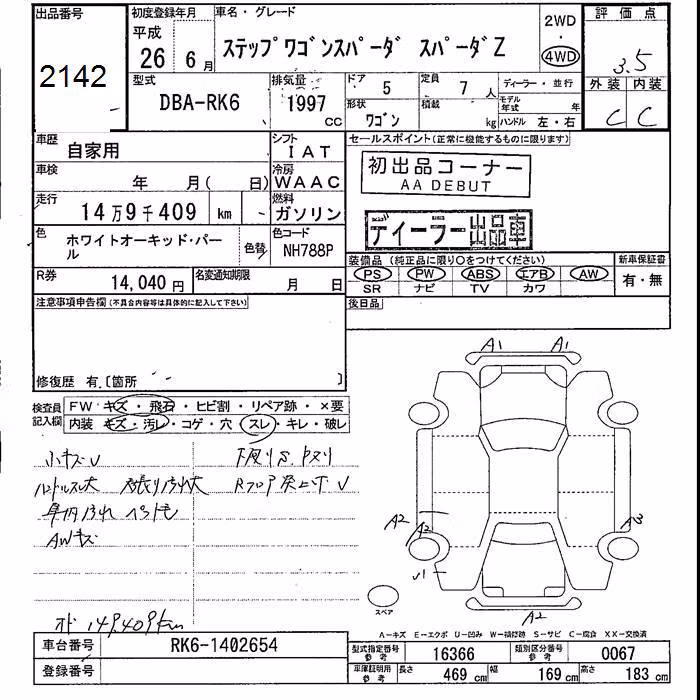 出品番号
2142
初度登録年月
平成
26 6月
車名・グレード
ステップワゴンスパーダ スパーダZ
2WD
・
4WD
評価点
3.5
外装 内装
C C
型式
DBA-RK6
排気量
1997
cc
ドア 5
定員 7 人
形状
ワゴン
積載
kg
ディーラー・並行
モデル年式 年
ハンドル 左・右
車歴
自家用
シフト
IAT
車検
年 月( 日)
冷房
WAAC
走行
14万9千409 km
燃料
ガソリン
色
ホワイトオーキッド・パール
色替
色コード
NH788P
R券
14,040円
名変通知期限
月 日
セールスポイント(正常に機能するものに限ります)
初出品コーナー
AA DEBUT
ディーラー出品車
装備品(純正品に限り○をつけてください)
PS PW ABS エアB AW
SR ナビ TV カワ
新車保証書
有・無
後日品
注意事項申告欄(不具合内容等は具体的に記入して下さい)
修復歴 有〔箇所 〕
検査員記入欄
FW キズ・飛石・ヒビ割・リペア跡・×要
内装 キズ・汚レ・コゲ・穴・スレ・キレ・破レ
小キズU
ハンドルスレ大
AWキズ
オド 149409km
A1 A1
A2
A2
A3
U1
A2
スペア
A-キズ E-エクボ U-凹み W-補修跡 S-サビ C-腐食 XX-交換済
車台番号
RK6-1402654
登録番号
型式指定番号
参考
16366
類別区分番号
参考
0067
車庫証明用
参考
長さ 469 cm
幅 169 cm
高さ 183 cm